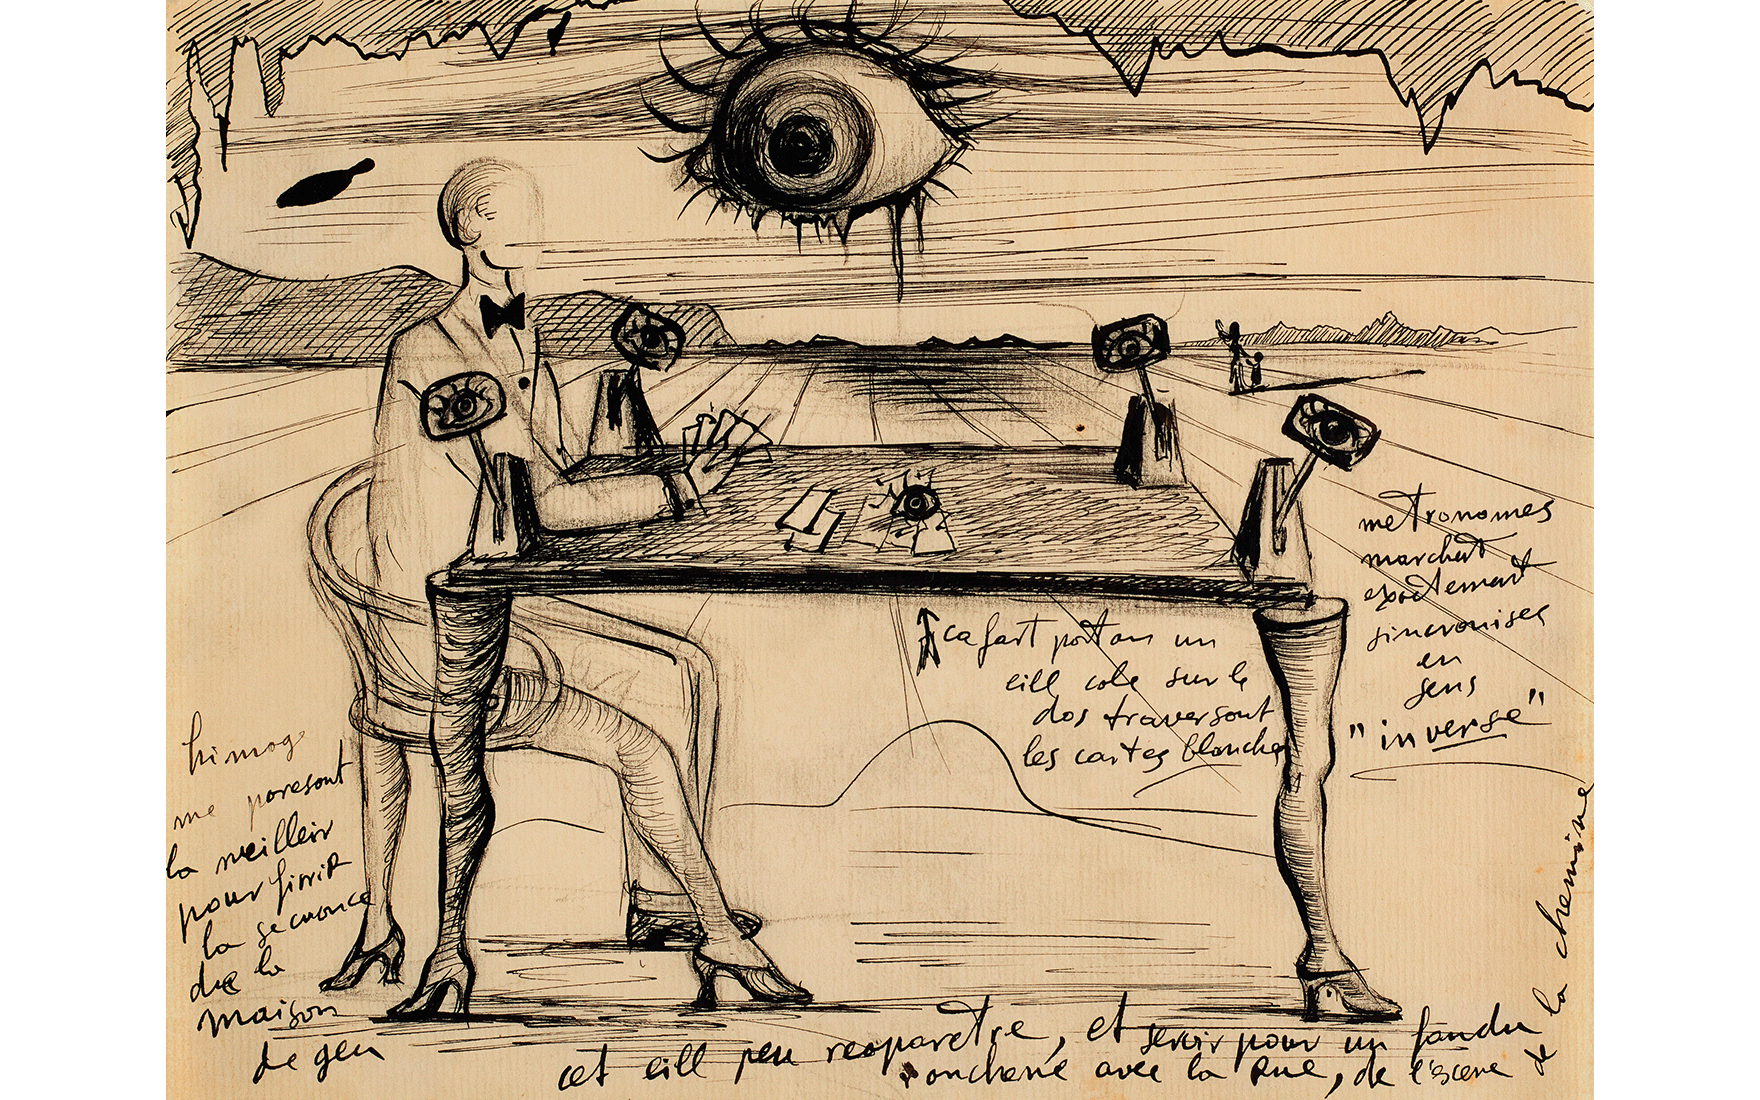 metronomes
marchent
exactemant
sincronises
en
sens
"inverse"
cafart portan un
eill cole sur le
dos traversont
les cartes blanches
himag
me paresont
la meilleir
pour finir
la secuonce
de la
maison
de geu
cet eill peu reaparetre, et servir pour un fandu
ouchene avec la Rue, de l'escene de la chemine